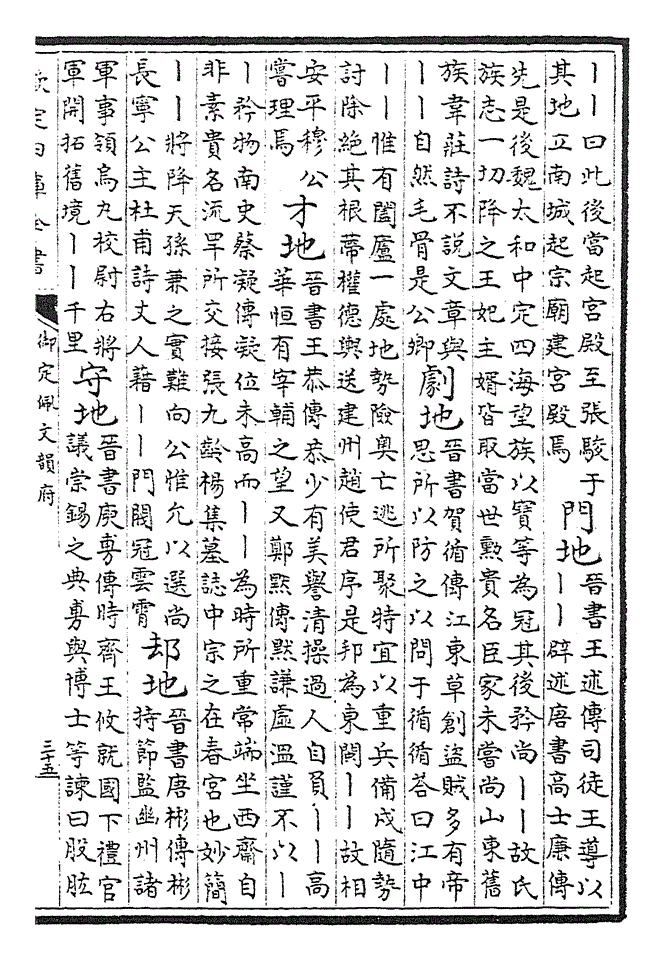 丨丨曰此後當起宮殿至張駿于
其地立南城起宗廟建宮殿焉
門地
晉書王述傳司徒王導以
丨丨辟述唐書高士廉傳
先是後魏太和中定四海望族以寶等為冠其後矜尚丨丨故氏
族志一切降之王妃主婿皆取當世勲貴名臣家未嘗尚山東舊
族韋莊詩不說文章與
丨丨自然毛骨是公卿
劇地
晉書賀循傳江東草創盜賊多有帝
思所以防之以問于循循答曰江中
丨丨惟有闔廬一處地勢險奥亡逃所聚特宜以重兵備戍隨勢
討除絕其根蔕權德輿送建州趙使君序是邦為東閩丨丨故相
安平穆公
嘗理焉
才地
晉書王恭傳恭少有美譽清操過人自負丨丨高
華恒有宰輔之望又鄭黙傳黙謙虛溫謹不以丨
丨矜物南史蔡凝傳凝位未高而丨丨為時所重常端坐西齋自
非素貴名流罕所交接張九齡楊集墓誌中宗之在春宮也妙簡
丨丨將降天孫兼之實難向公惟允以選尚
長寧公主杜甫詩丈人藉丨丨門闌冠雲霄
却地
晉書唐彬傳彬
持節監幽州諸
軍事領烏丸校尉右將
軍開拓舊境丨丨千里
守地
晉書庾旉傳時齊王攸就國下禮官
議崇錫之典旉與博士等諫曰股肱
欽定四庫全書
御定佩文韻府
三十五